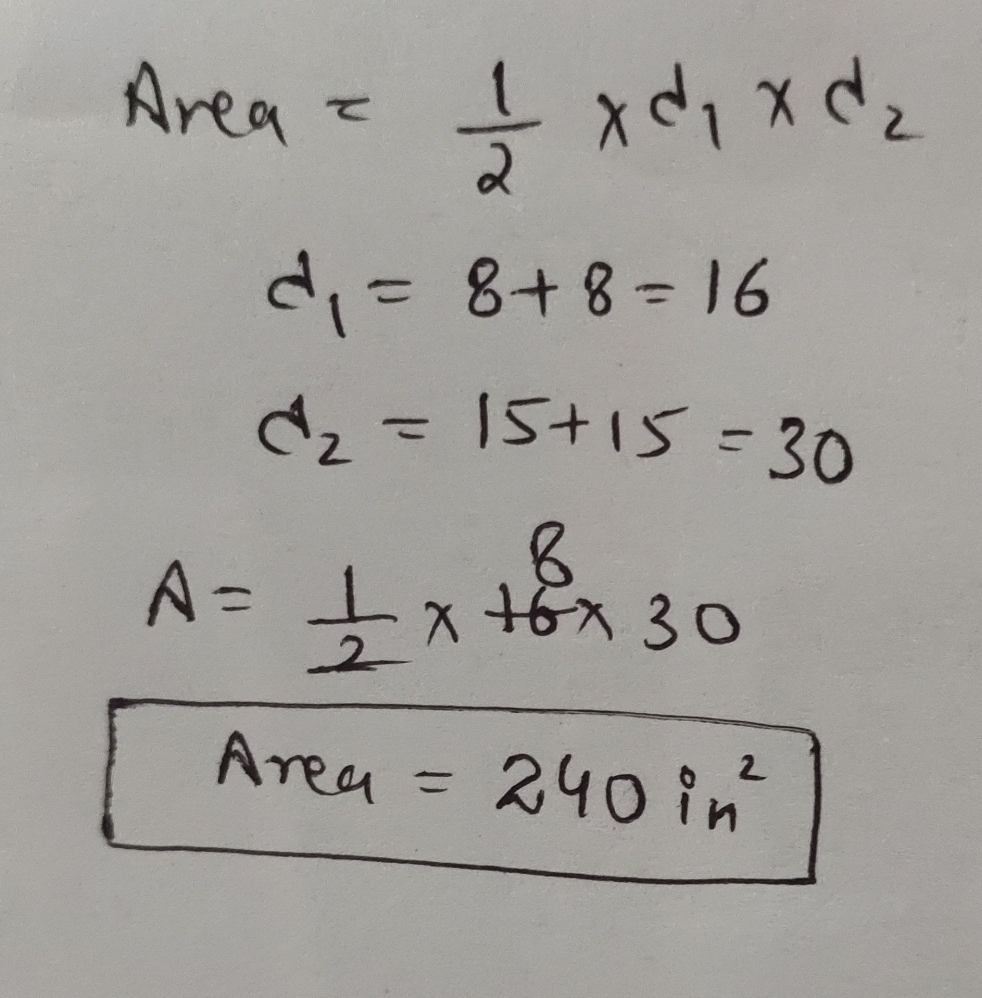 Area = 1/2 x d₁ x d₂
d₁ = 8+8=16
d₂ = 15+15=30
8
A= 1/2 x 16x 30
Area = 240 in²